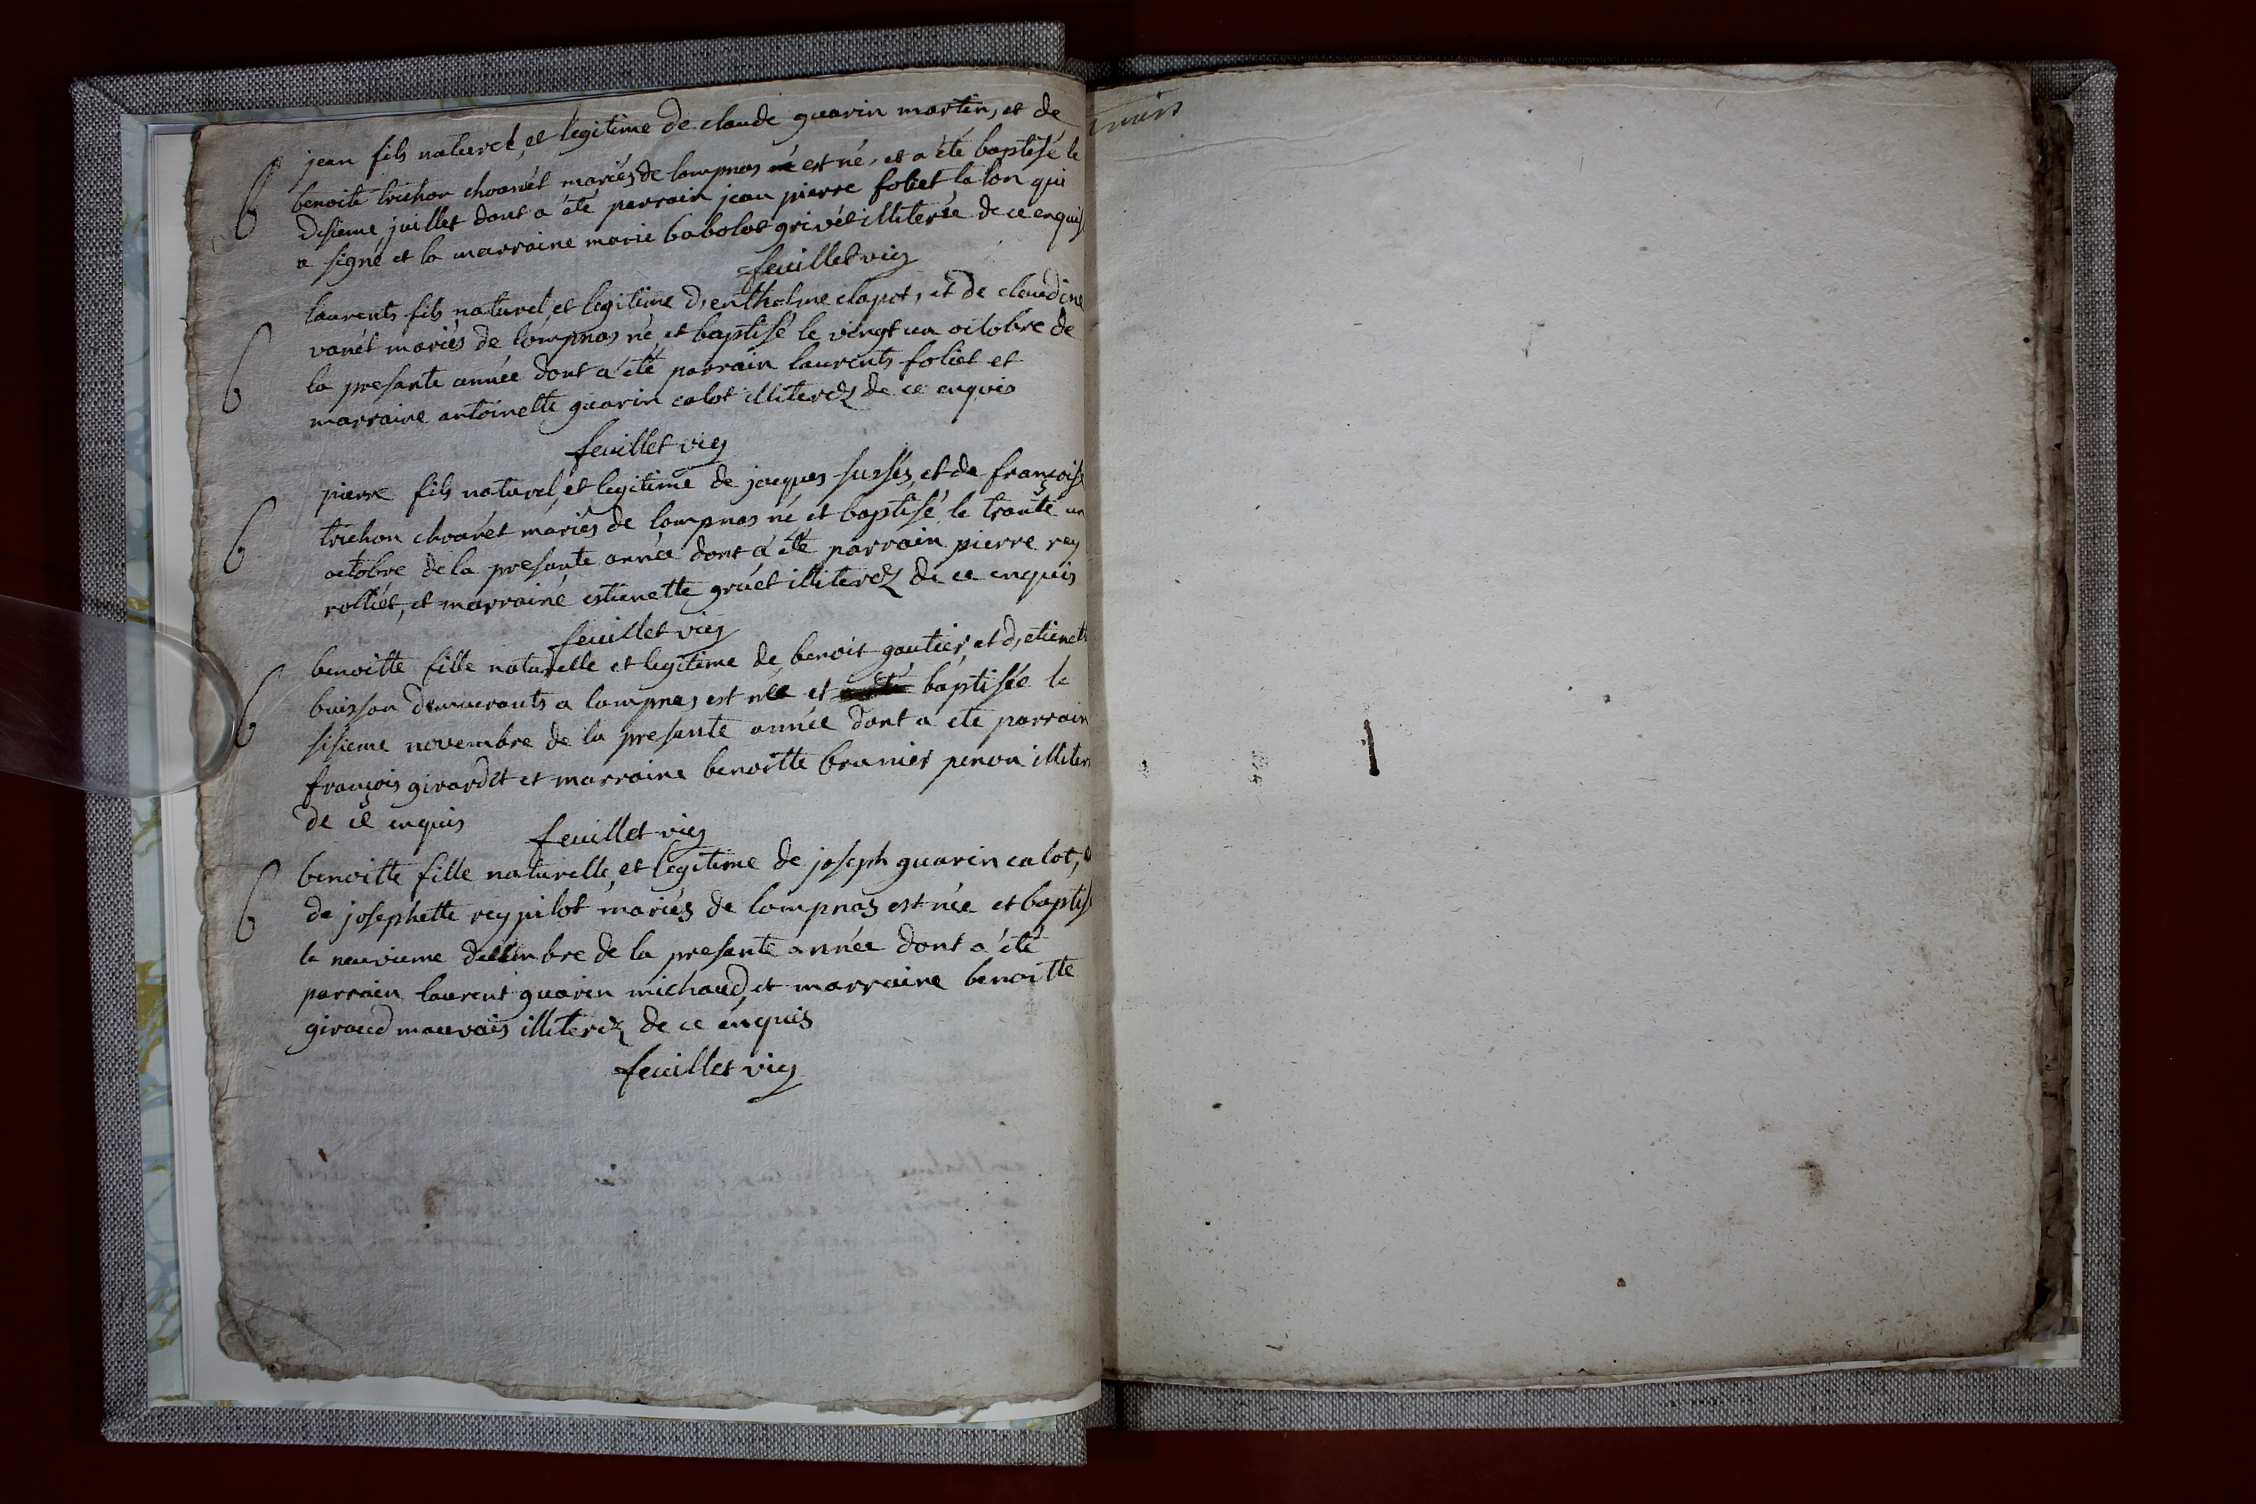 B
jean fils naturel, et legitime de claude guarin martin, et de
benoite trichon chvarèt mariés de lompnas né est né, et a été baptisé le
disieme juillet dont a été parrain jean pierre foliet talon qui
a signé et la marraine marie babolat grivèt illiterée de ce enquis
feuillet vicr
B
laurents fils naturel, et legitime d,entholme clapot, et de claudine
vanèt mariés de lompnas né et baptisé le vingt un octobre de
la presante année dont a été parrain laurents foliet et
marraine antoinette guarin calot illiterez de ce enquis
feuillet vicr
B
pierre fils naturel, et legitime de jacques et de françoise
trichon chvarèt mariés de lompnas né et baptisé le trante un
octobre de la presante année dont a été parrain pierre rey
rolliet, et marraine estienette gruèt illiterez de ce enquis
feuillet vicr
B
benoitte fille naturelle et legitime de benoit gautier, et d,etienett
buisson demeurants a lompnas est née et baptisée le
sisieme novembre de la presante année dont a ete parrain
françois girardet et marraine benoitte brunier penon illiter
de ce enquis
feuillet vicr
B
benoitte fille naturelle, et legitime de joseph guarin calot, e
de josephette rey pilot mariés de lompnas est née et baptis
le neuvieme decembre de la presante année dont a été
parrain laurent guarin michaud, et marraine benoitte
giraud mauvais illiterez de ce enquis
feuillet vicr